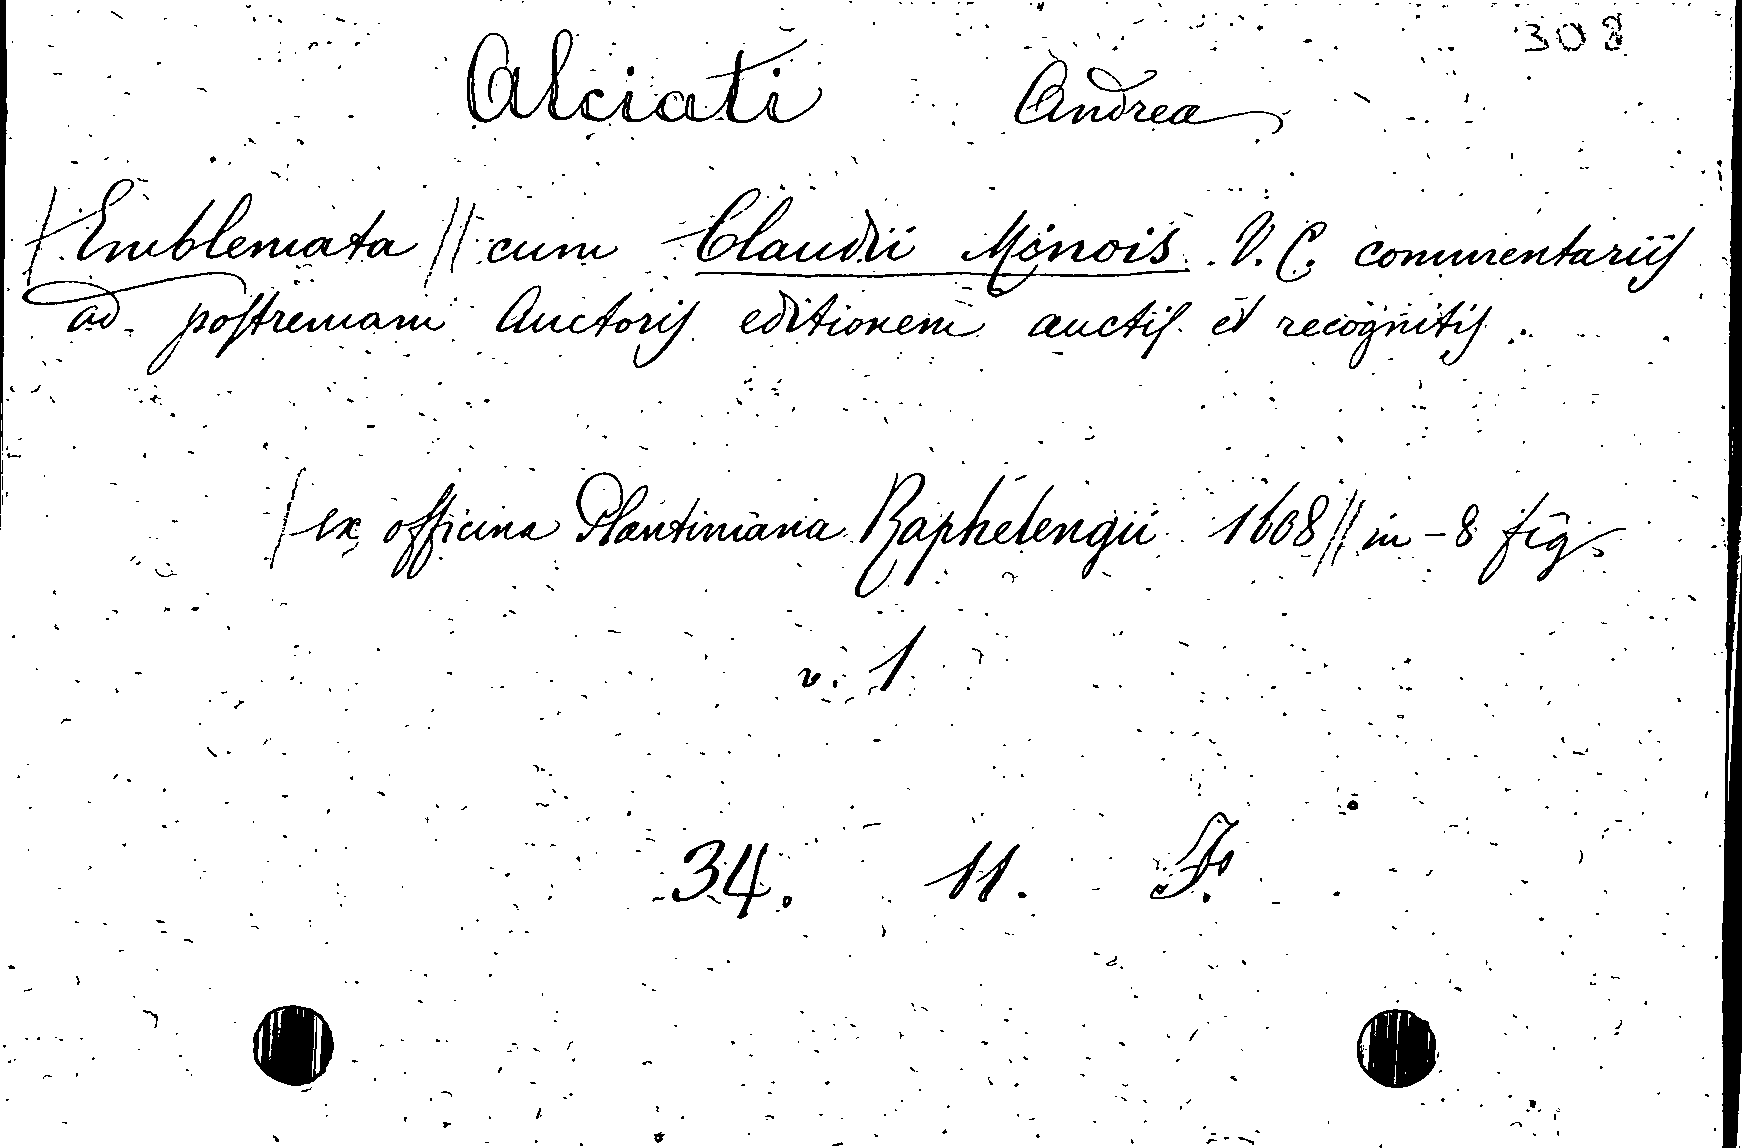 308
Alciati Andrea
/ Emblemata // cum Claudii Minois V. C. commentariis
ad postremam Auctoris editionem auctis et recognitis.
/ ex officina Plantiniana Raphelengii 1608 // in-8 fig.
v. 1
34. 11. F.